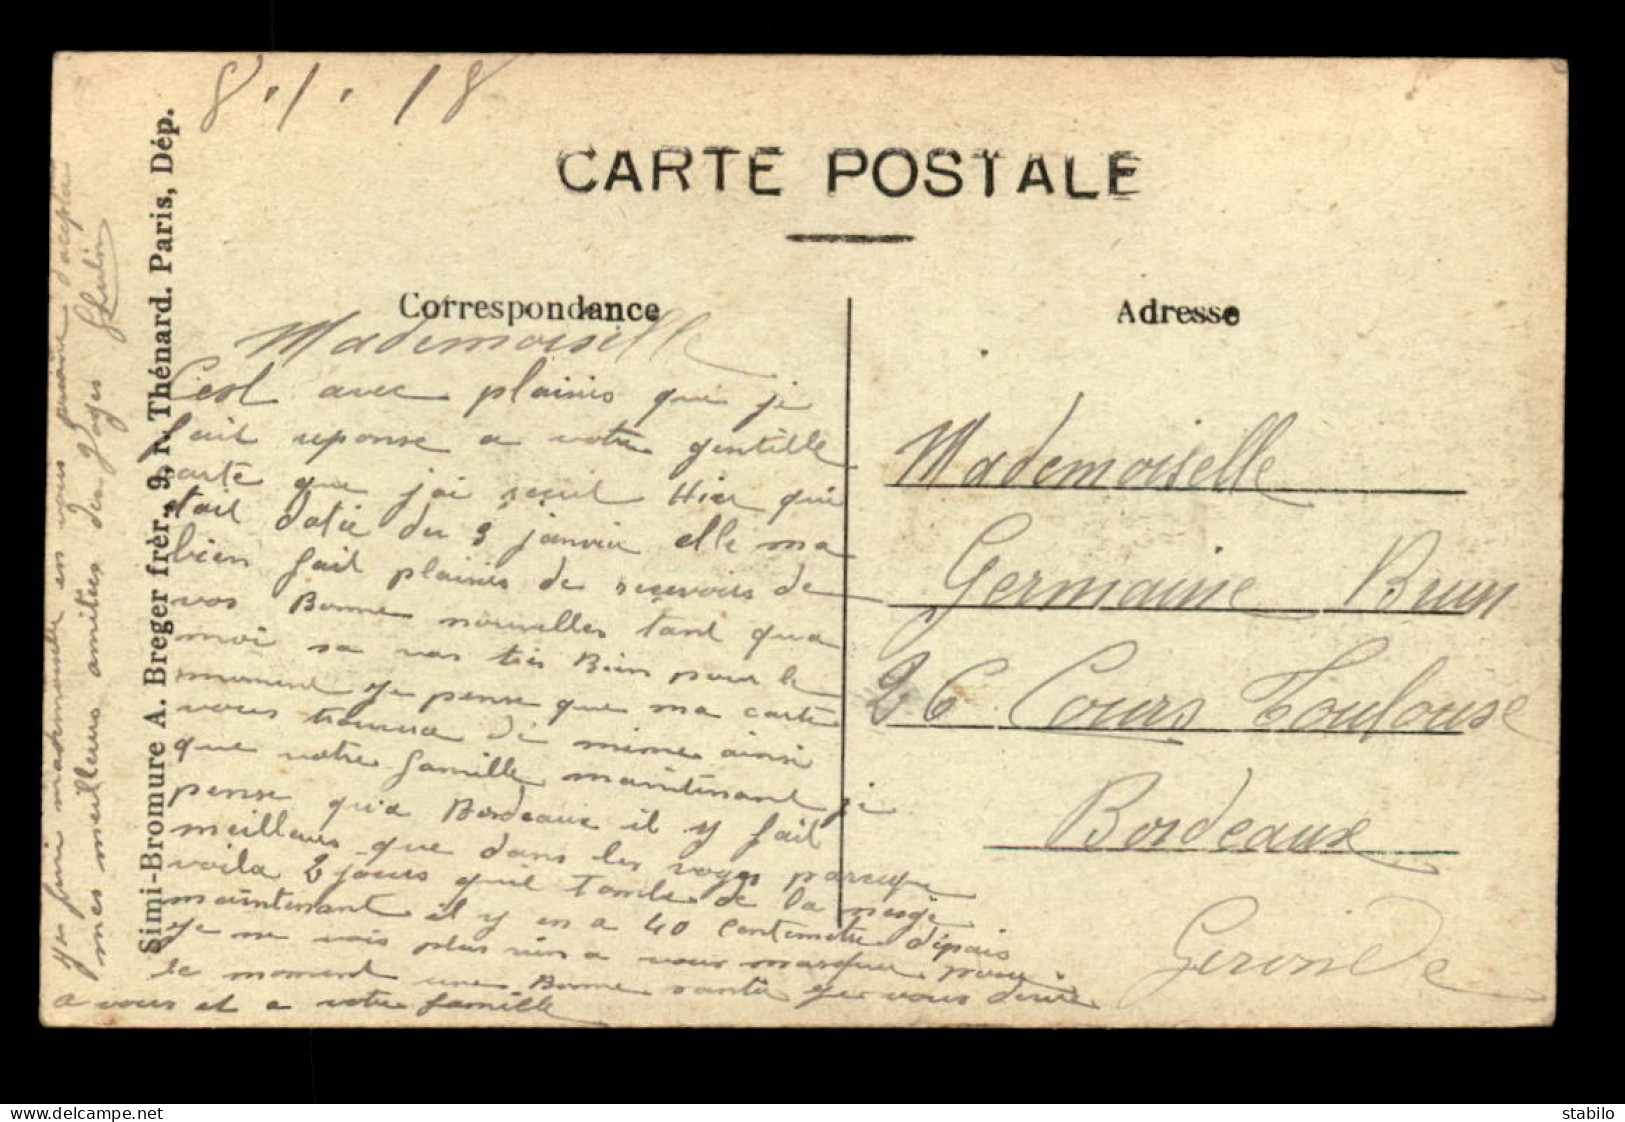 8.1.18
CARTE POSTALE
Correspondance
Adresse
Mademoiselle
C'est avec plaisis que je
fait reponse a votre gentille
carte que j'ai reçut Hier qui
était datée du 3 janvier elle ma
bien fait plaisis de recevoirs de
vos Bonne nouvelles tant qua
moi sa vas très Bien pour le
moment je pense que ma carte
vous trouvera de mème ainsi
que votre famille maintenant je
pense qu'a Bordeaux il y fait
meilleurs que dans les voges parceque
voila 2 jours quil tombe de la neige
maintenant il y en a 40 centimetre depais
je ne vois plus rien a vous marquer pour
le moment une Bonne santé je vous desire
a vous et a votre famille
je fini mademoiselle en vous priant d'accepter
mes meilleurs amities des Voges
Simi-Bromure A. Breger frèr., 9, r. Thénard. Paris, Dép.
Mademoiselle
Germaine Brun
26 Cours Toulouse
Bordeaux
Gironde
stabilo